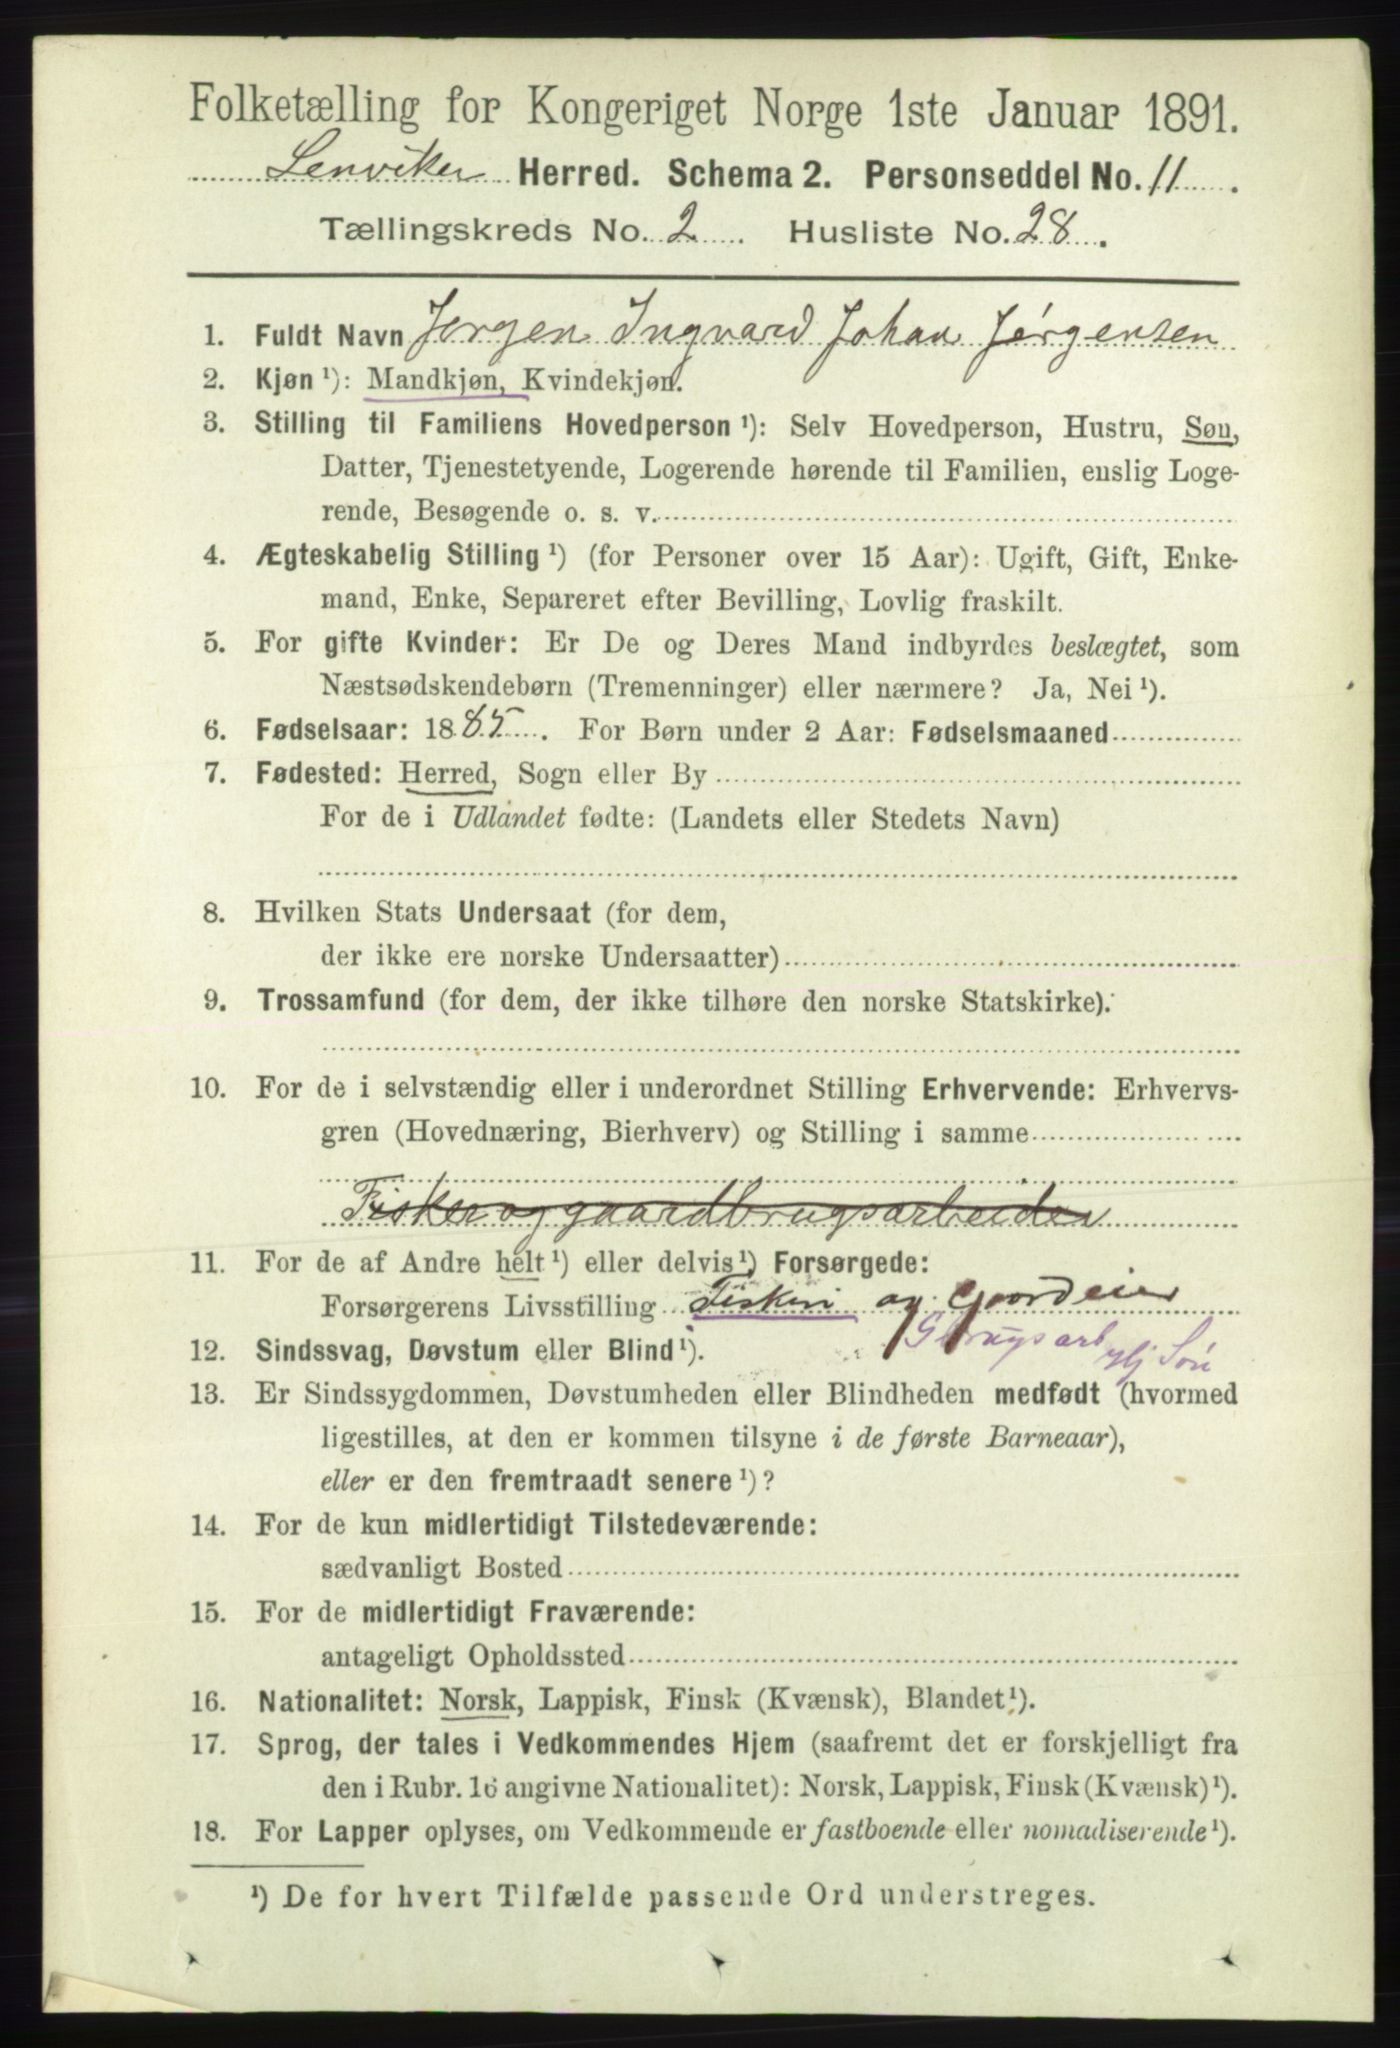 Folketælling for Kongeriget Norge 1ste Januar 1891.
Lenviken Herred. Schema 2. Personseddel No. 11
Tællingskreds No. 2 Husliste No. 28
1. Fuldt Navn Jørgen Ingvard Johan Jørgensen
2. Kjøn ¹): Mandkjøn, Kvindekjøn.
3. Stilling til Familiens Hovedperson ¹): Selv Hovedperson, Hustru, Søn,
Datter, Tjenestetyende, Logerende hørende til Familien, enslig Loge-
rende, Besøgende o. s. v.
4. Ægteskabelig Stilling ¹) (for Personer over 15 Aar): Ugift, Gift, Enke-
mand, Enke, Separeret efter Bevilling, Lovlig fraskilt.
5. For gifte Kvinder: Er De og Deres Mand indbyrdes beslægtet, som
Næstsødskendebørn (Tremenninger) eller nærmere? Ja, Nei ¹).
6. Fødselsaar: 1885. For Børn under 2 Aar: Fødselsmaaned
7. Fødested: Herred, Sogn eller By
For de i Udlandet fødte: (Landets eller Stedets Navn)
8. Hvilken Stats Undersaat (for dem,
der ikke ere norske Undersaatter)
9. Trossamfund (for dem, der ikke tilhøre den norske Statskirke).
10. For de i selvstændig eller i underordnet Stilling Erhvervende: Erhvervs-
gren (Hovednæring, Bierhverv) og Stilling i samme
Fisker og gaardbrugsarbeider
11. For de af Andre helt ¹) eller delvis ¹) Forsørgede:
Forsørgerens Livsstilling Fiskeri og Gaardeier
Gbrugsarb hj Søn
12. Sindssvag, Døvstum eller Blind ¹).
13. Er Sindssygdommen, Døvstumheden eller Blindheden medfødt (hvormed
ligestilles, at den er kommen tilsyne i de første Barneaar),
eller er den fremtraadt senere ¹)?
14. For de kun midlertidigt Tilstedeværende:
sædvanligt Bosted
15. For de midlertidigt Fraværende:
antageligt Opholdssted
16. Nationalitet: Norsk, Lappisk, Finsk (Kvænsk), Blandet ¹).
17. Sprog, der tales i Vedkommendes Hjem (saafremt det er forskjelligt fra
den i Rubr. 16 angivne Nationalitet): Norsk, Lappisk, Finsk (Kvænsk) ¹).
18. For Lapper oplyses, om Vedkommende er fastboende eller nomadiserende ¹).
¹) De for hvert Tilfælde passende Ord understreges.